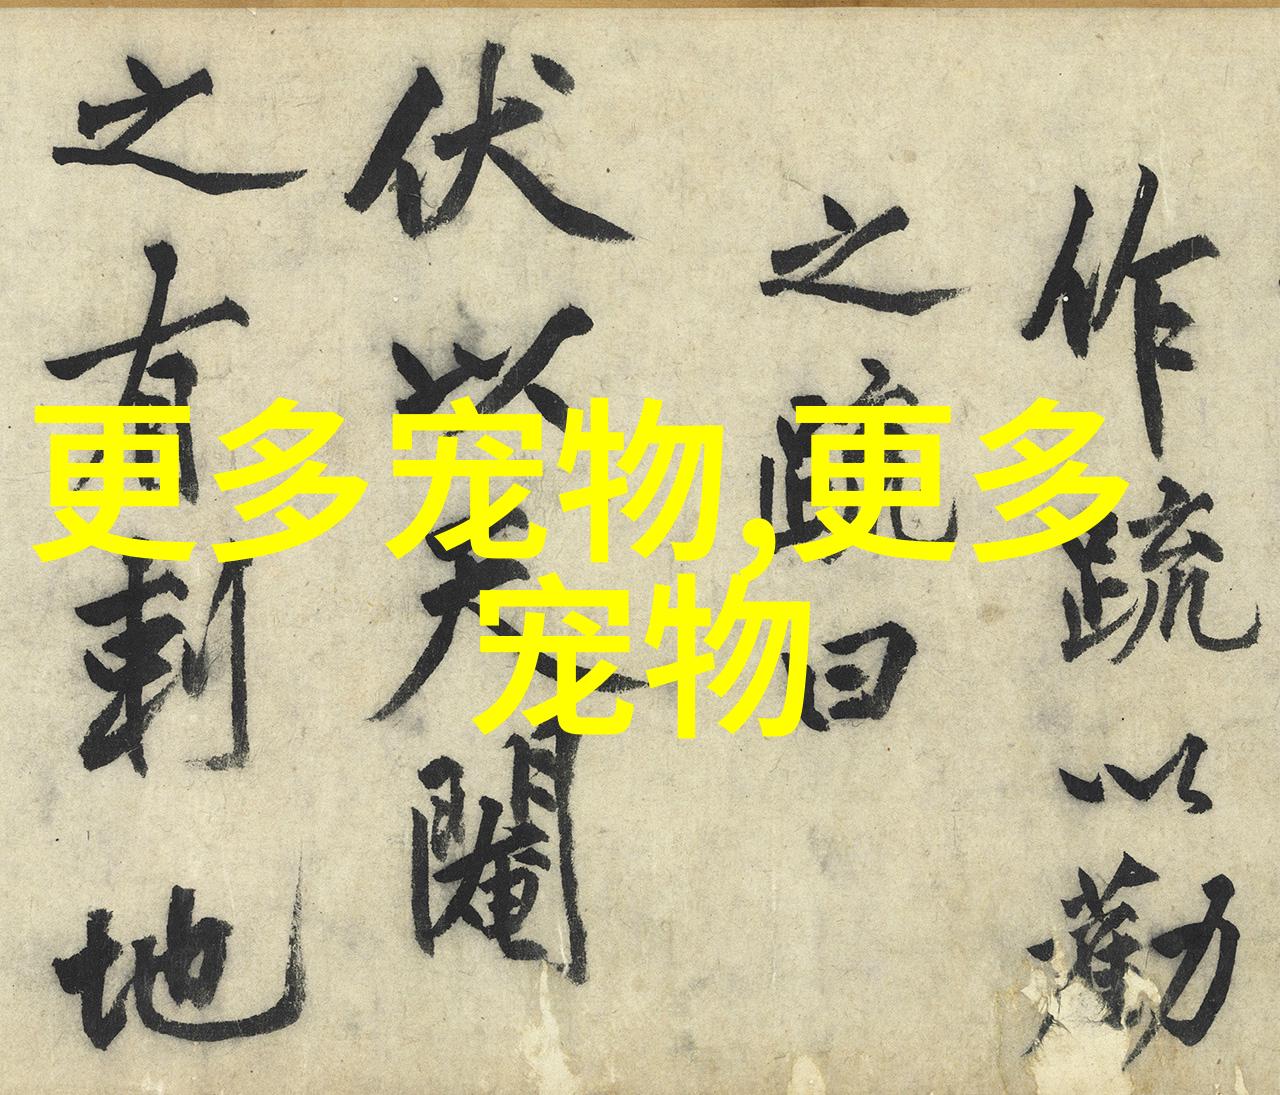 作疏以勸
之疏曰
伏以天閹
之有刺地
更多宠物,更多
宠物